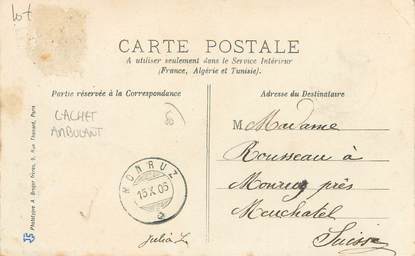 lot
CARTE POSTALE
A utiliser seulement dans le Service Intérieur
(France, Algérie et Tunisie).
Partie réservée à la Correspondance
Adresse du Destinataire
CACHET
AMBULANT
MONRUZ
13.X.05
M Madame
Rousseau à
Monruz près
Neuchatel
Suisse
Julia L.
Phototypie A. Breger Frères, 9, Rue Thénard, Paris